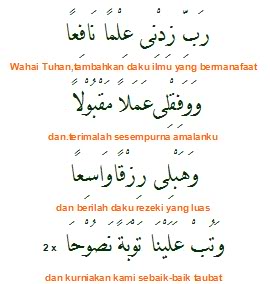 رَبِّ زِدْنِى عِلْمًا نَافِعًا
Wahai Tuhan,tambahkan daku ilmu yang bermanafaat
وَوَفِقْلِى عَمَلًا مَقْبُوْلًا
dan.terimalah sesempurna amalanku
وَهَبْلِى رِزْقًا وَاسِعًا
dan berilah daku rezeki yang luas
وَتُبْ عَلَيْنَا تَوْبَةً نَصُوْحَا 2 x
dan kurniakan kami sebaik-baik taubat